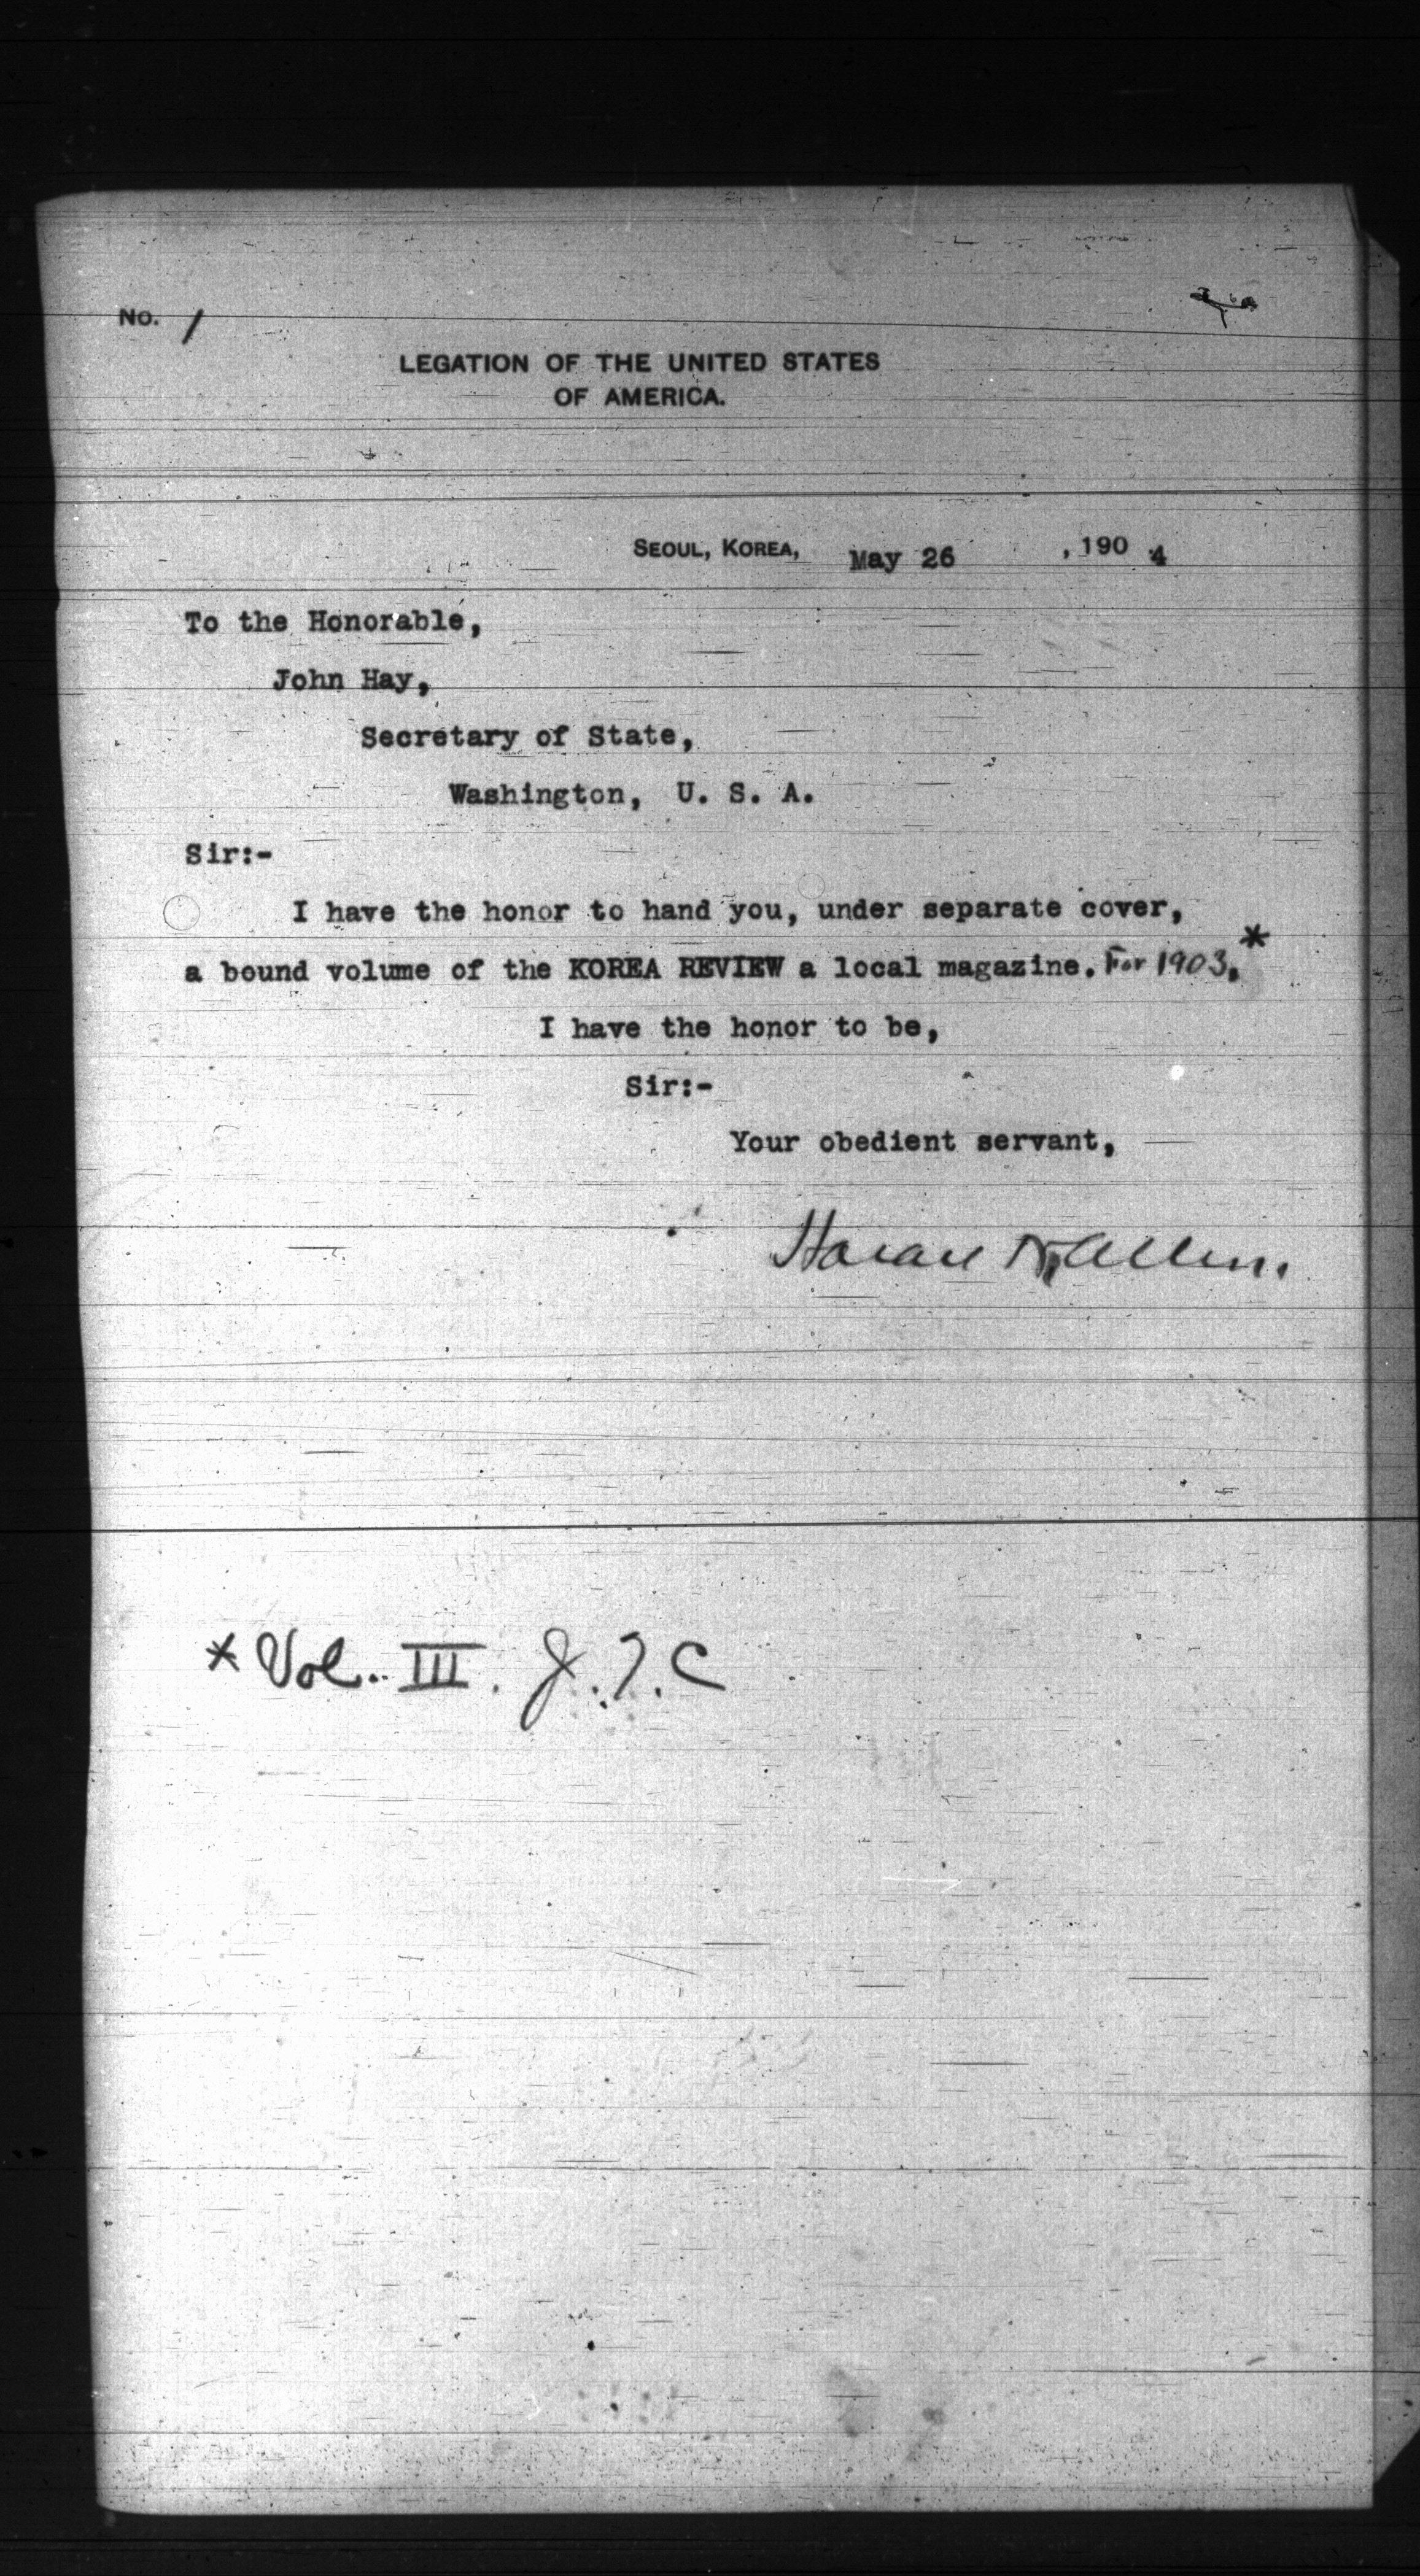 No. 1
LEGATION OF THE UNITED STATES
OF AMERICA.
SEOUL, KOREA, May 26 , 190 4
To the Honorable,
John Hay,
Secretary of State,
Washington, U. S. A.
Sir:-
I have the honor to hand you, under separate cover,
a bound volume of the KOREA REVIEW a local magazine. For 1903.*
I have the honor to be,
Sir:-
Your obedient servant,
Horace N. Allen.
* Vol. III. J. C